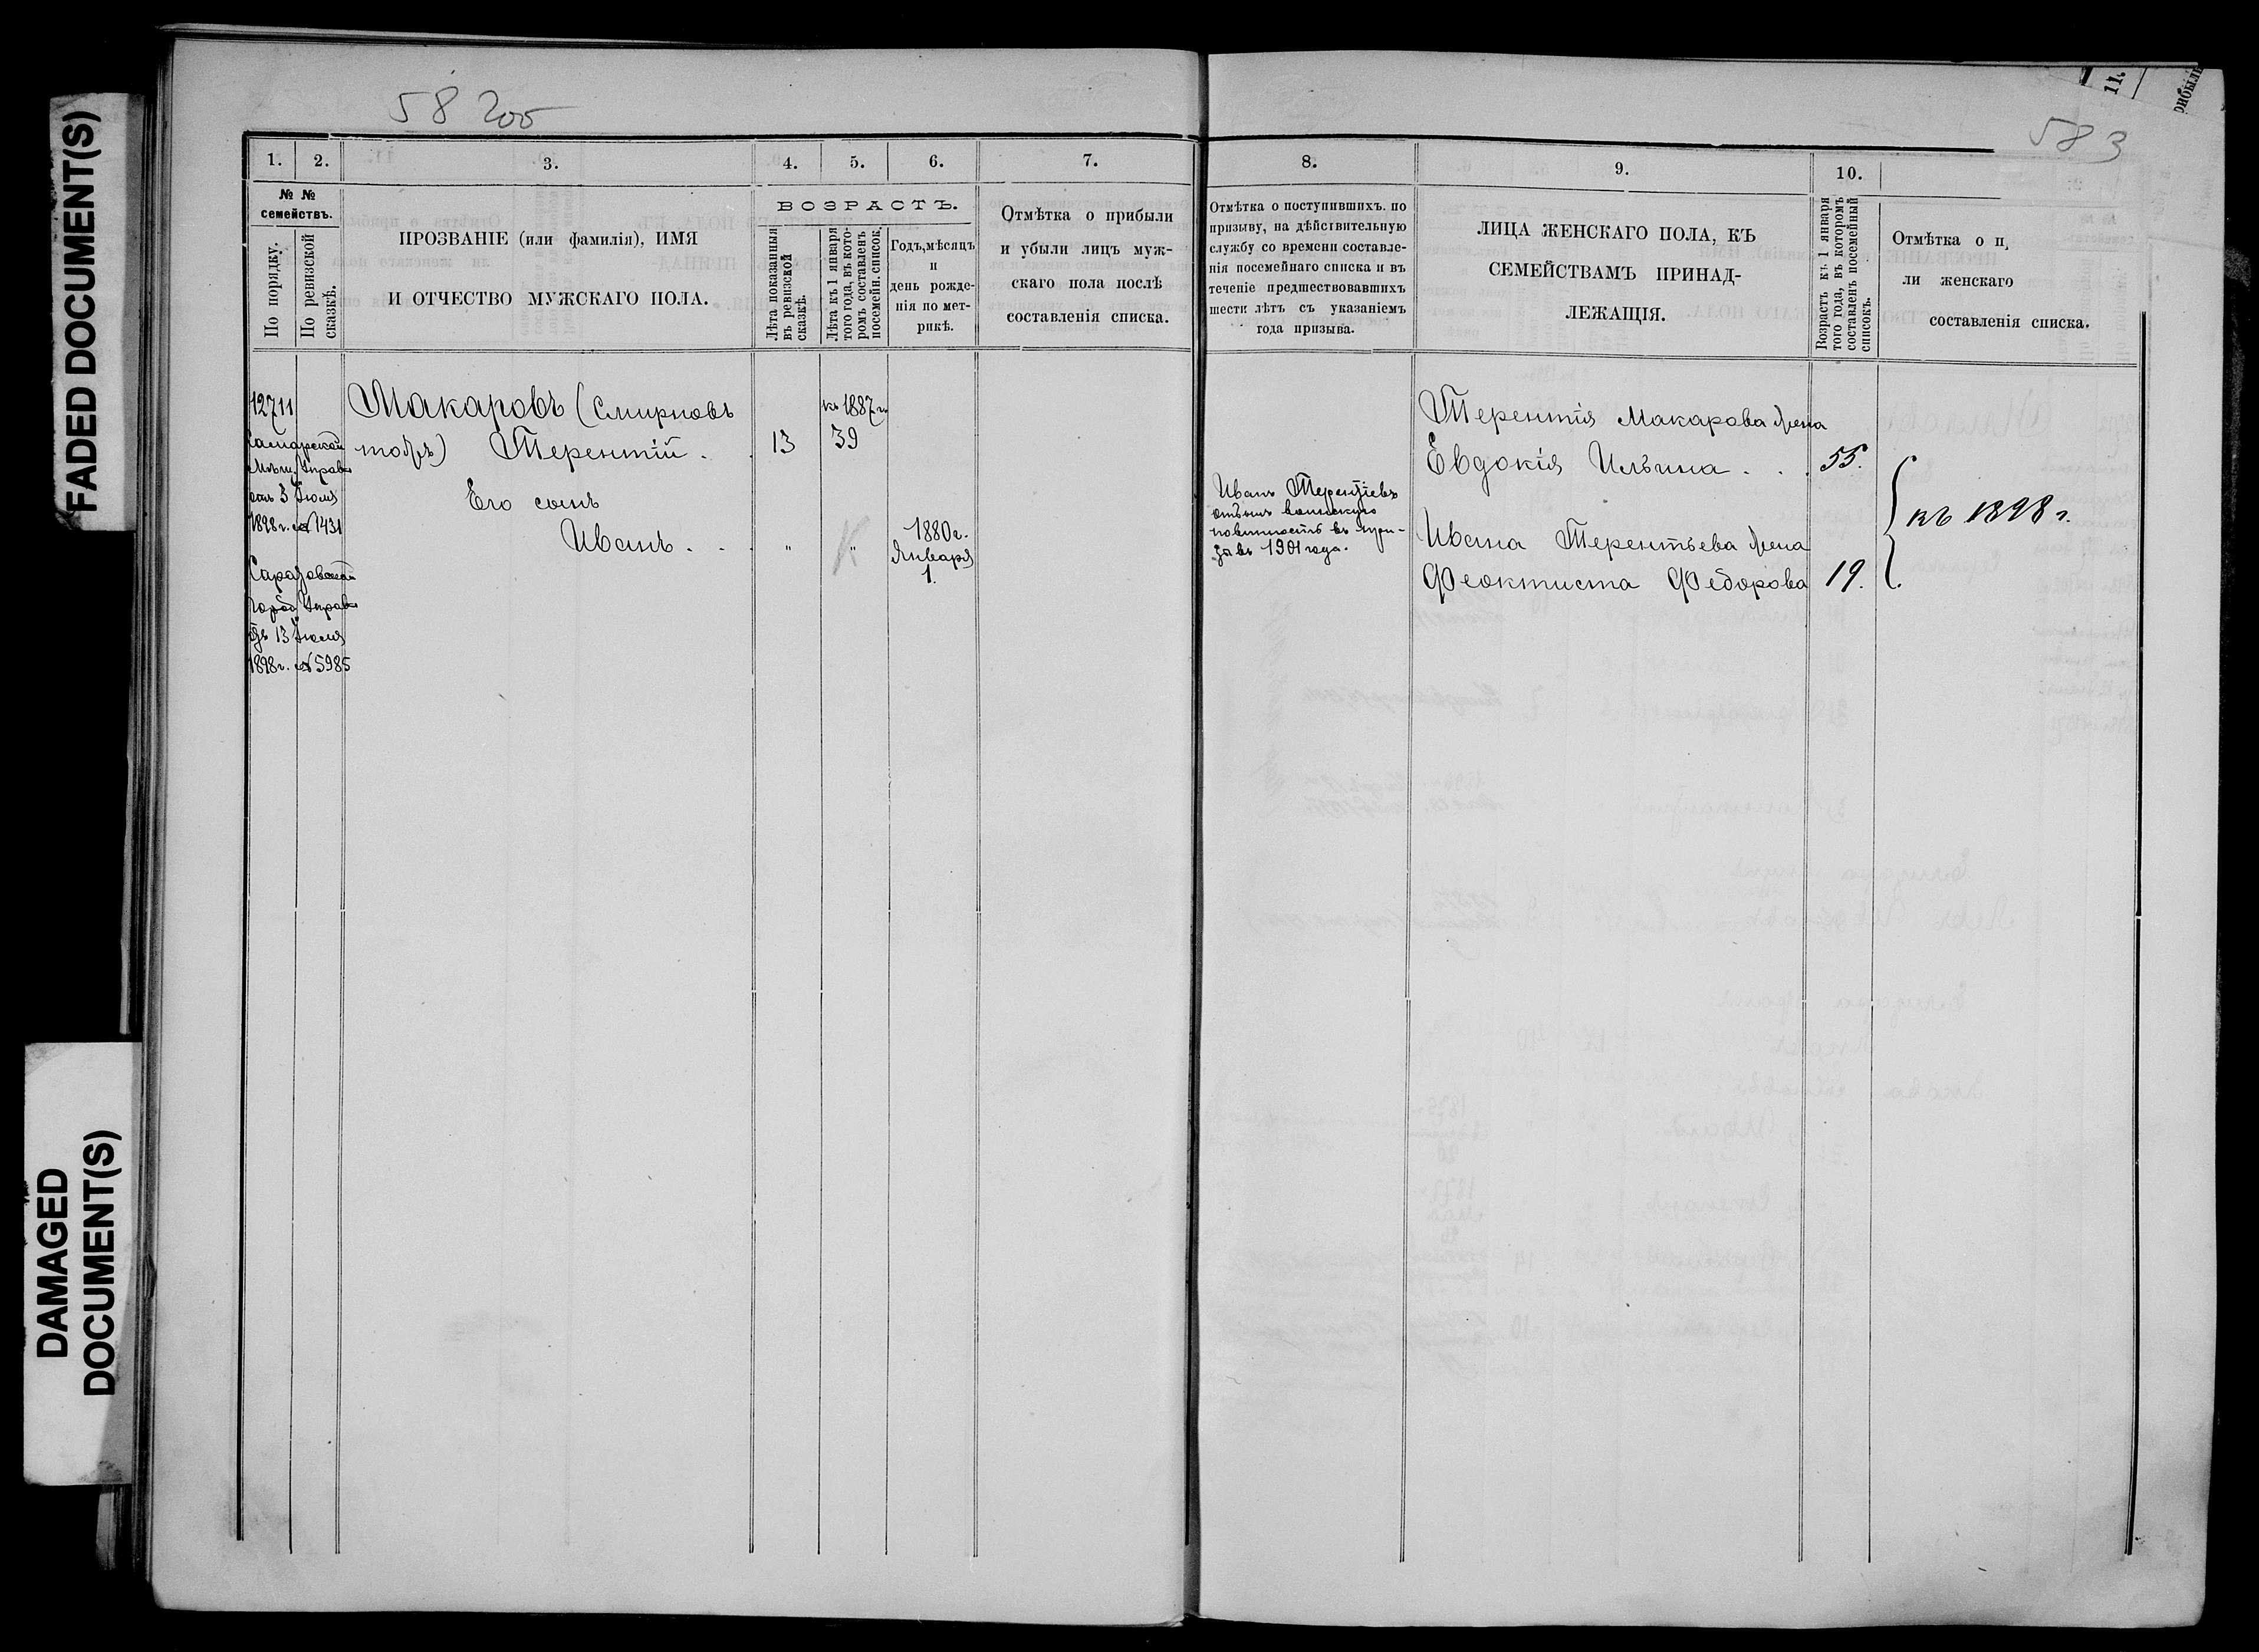 FADED DOCUMENT(S)
DAMAGED
DOCUMENT(S)
58 200
583
1.
2.
3.
4.
5.
6.
7.
№ №
семействъ.
По порядку.
По ревизской
сказкѣ.
ПРОЗВАНІЕ (или фамилія), ИМЯ
И ОТЧЕСТВО МУЖСКАГО ПОЛА.
ВОЗРАСТЪ.
Лѣта показанныя
въ ревизской
сказкѣ.
Лѣта къ 1 января
того года, въ кото-
ромъ составленъ
посемейн. список.
Годъ, мѣсяцъ
и
день рожде-
нія по мет-
рикѣ.
Отмѣтка о прибыли
и убыли лицъ муж-
скаго пола послѣ
составленія списка.
12711
Самарской
Мѣщ. Управы
отъ 3 Іюля
1898 г. № 1431
Саратовской
Город Управы
отъ 13 Іюля
1898 г. № 5985
Макаровъ (Смирновъ
тожъ) Терентій . .
13
къ 1887 г.
39
Его сынъ
Иванъ . .
"
"
1880 г.
Января
1.
8.
9.
10.
11.
Отмѣтка о поступившихъ. по
призыву, на дѣйствительную
службу со времени составле-
нія посемейнаго списка и въ
теченіе предшествовавшихъ
шести лѣтъ съ указаніемъ
года призыва.
ЛИЦА ЖЕНСКАГО ПОЛА, КЪ
СЕМЕЙСТВАМЪ ПРИНАД-
ЛЕЖАЩІЯ.
Возрастъ къ 1 января
того года, въ которомъ
составленъ посемейный
списокъ.
Отмѣтка о п
ли женскаго
составленія списка.
рибыл
Иванъ Терентіевъ
отбылъ воинскую
повинность въ при-
зывъ 1901 года.
Терентія Макарова жена
Евдокія Ильина . . .
55.
Ивана Терентьева жена
Феоктиста Федорова
19.
къ 1898 г.